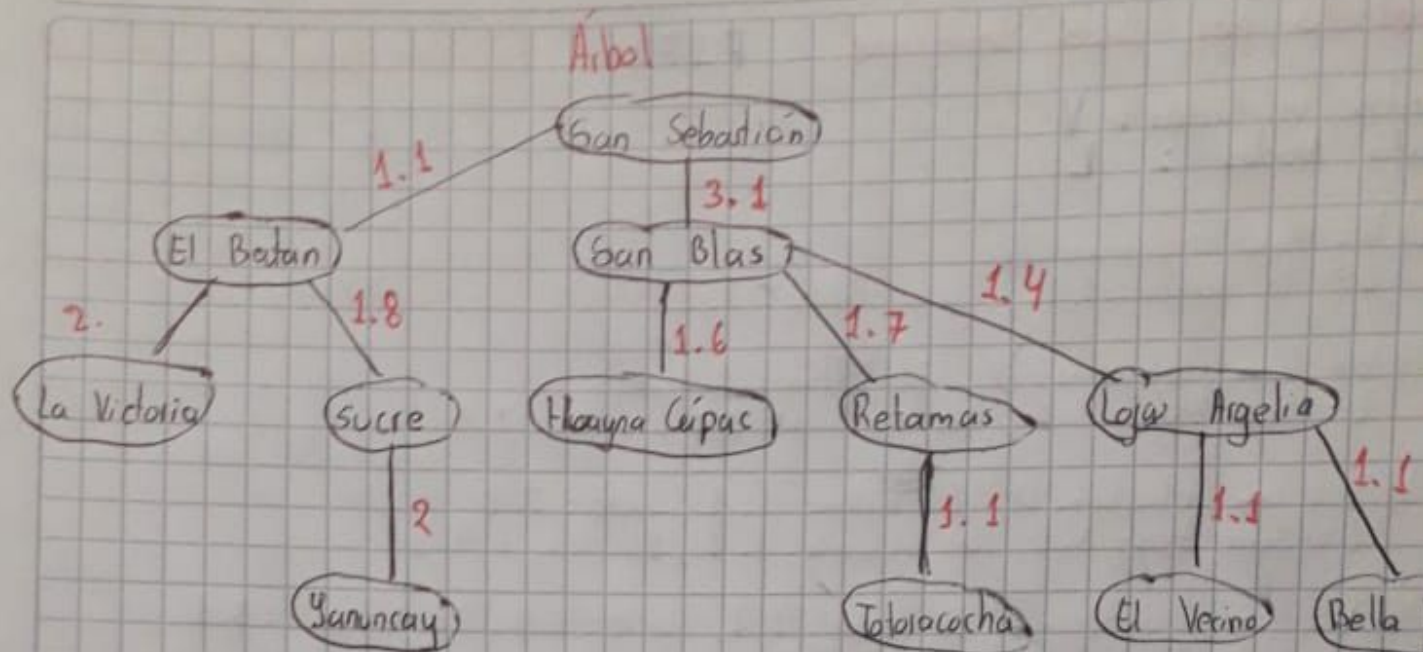 Árbol
San Sebastián
1.1
3.1
El Batan
San Blas
2.
1.8
1.6
1.7
1.4
La Victoria
Sucre
Huayna Cápac
Retamas
Loja Argelia
2
1.1
1.1
1.1
Yanuncay
Totoracocha
El Vecino
Bella